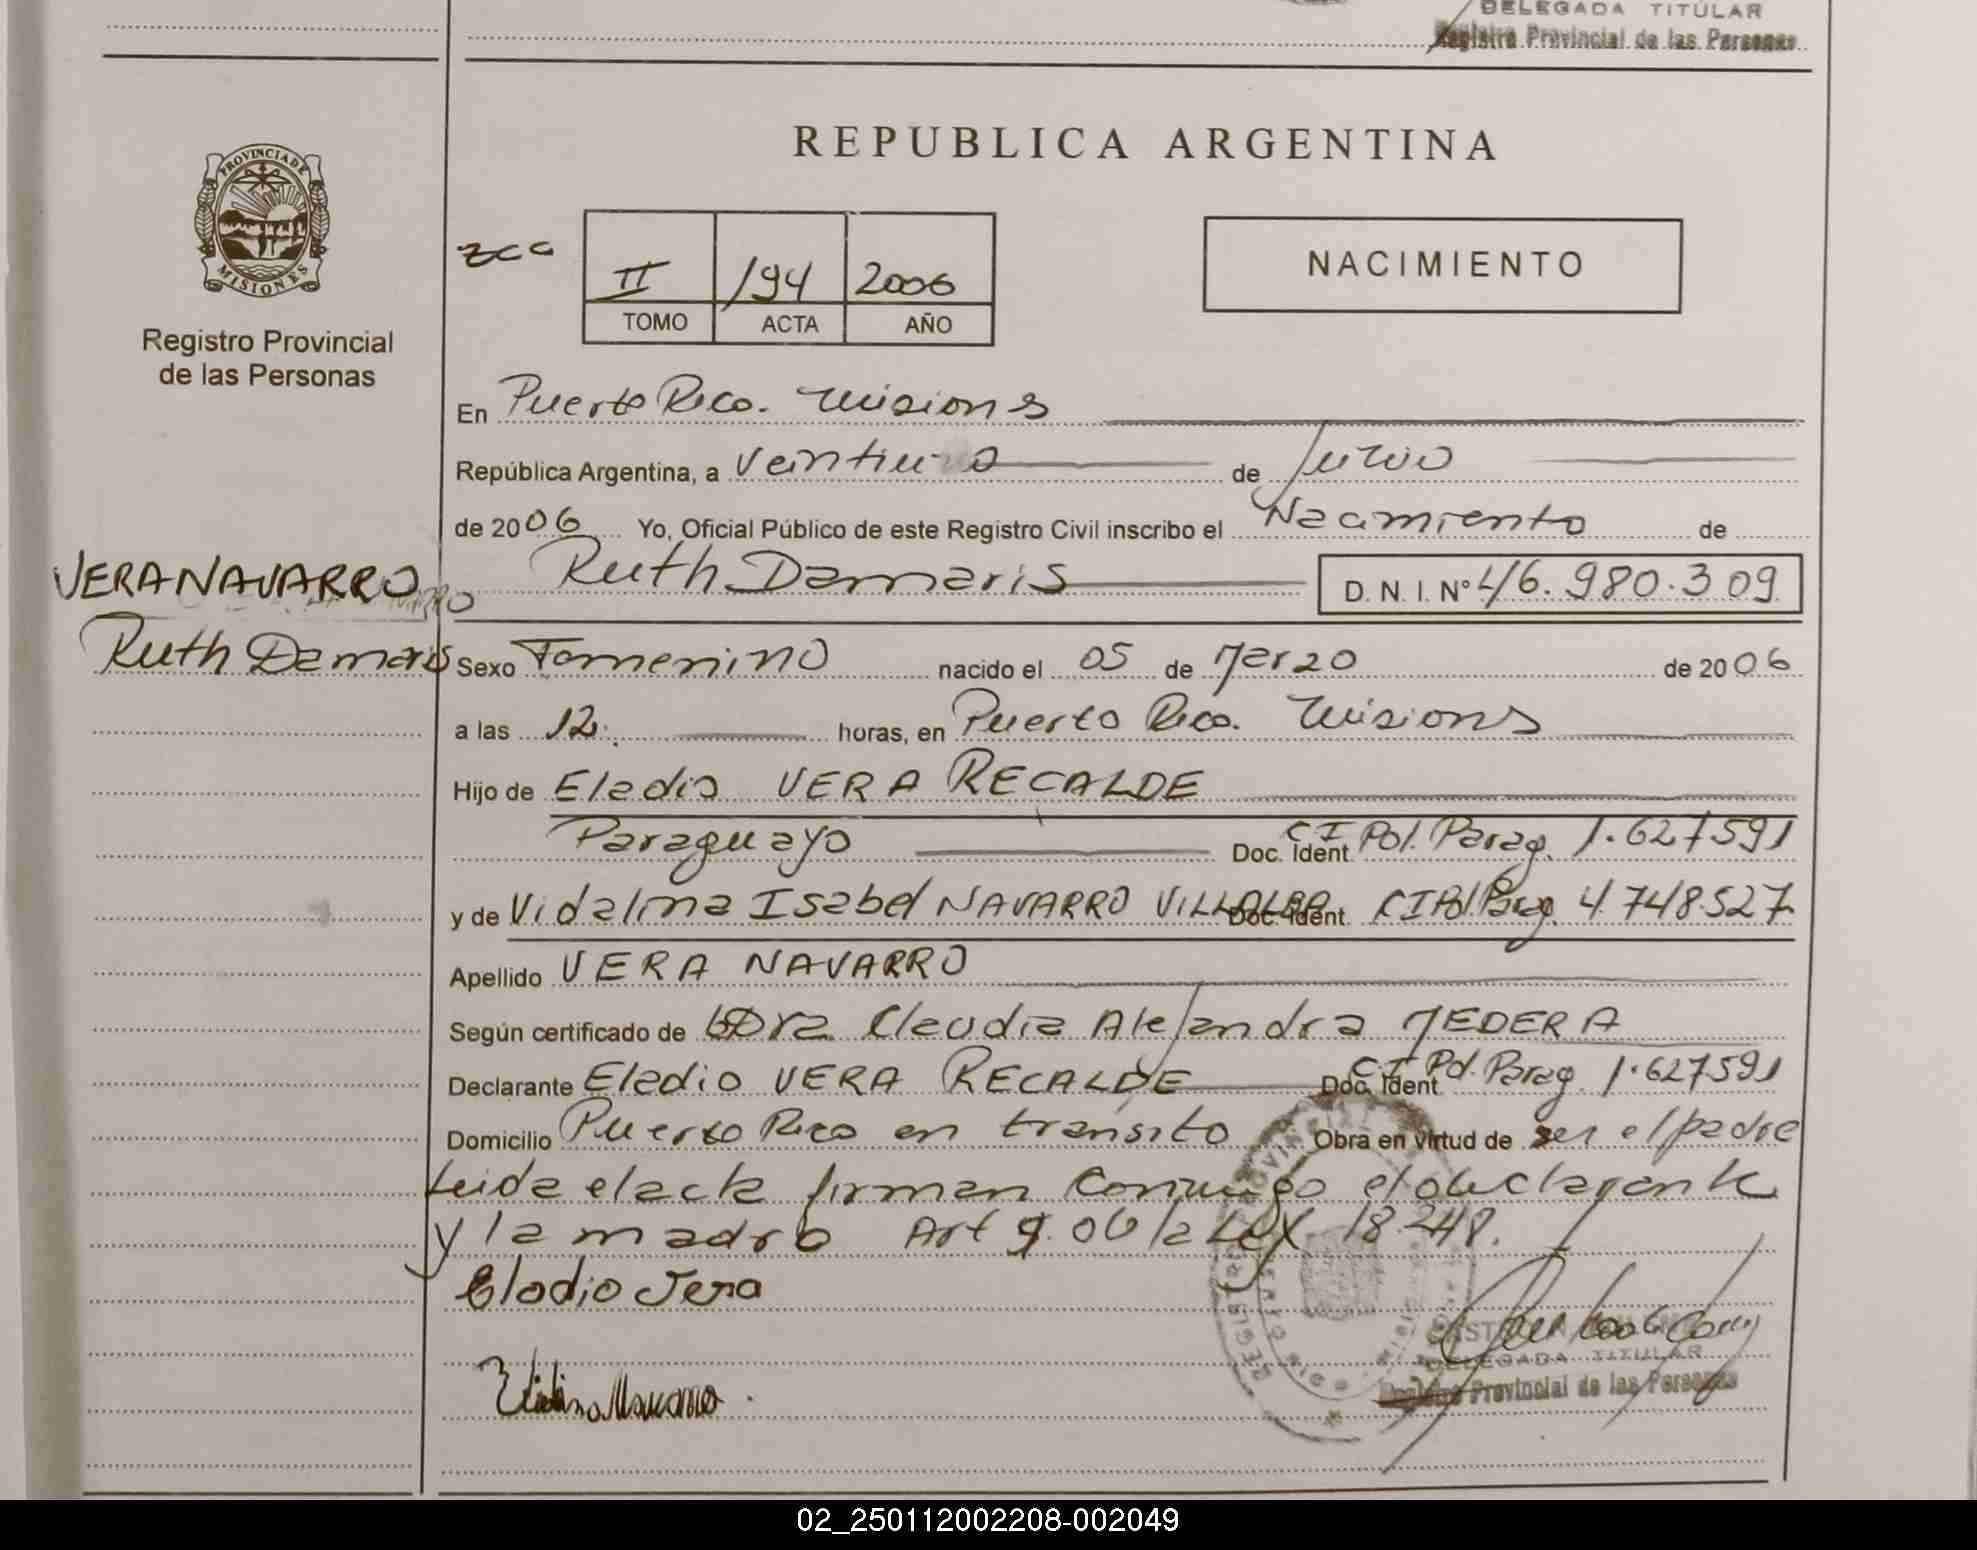 DELEGADA TITULAR
Registro Provincial de las Personas
PROVINCIA DE
MISIONES
Registro Provincial
de las Personas
REPUBLICA ARGENTINA
zcc
II 194 2006
TOMO ACTA AÑO
NACIMIENTO
En Puerto Rico. Misiones
República Argentina, a Veintiuno de Junio
de 2006 Yo, Oficial Público de este Registro Civil inscribo el Nacimiento de
VERA NAVARRO
Ruth Damaris
Ruth Damaris D. N. I. Nº 46.980.309
Sexo Femenino nacido el 05 de Marzo de 2006
a las 12. horas, en Puerto Rico. Misiones
Hijo de Eladio VERA RECALDE
Paraguayo Doc. Ident. CI Pol. Parag. 1.627591
y de Vidalina Isabel NAVARRO VILLALBA Doc. Ident. CI Pol Parag. 4.748.527
Apellido VERA NAVARRO
Según certificado de Dra Claudia Alejandra MEDERA
Declarante Eladio VERA RECALDE Doc. Ident CI Pol. Parag. 1.627591
Domicilio Puerto Rico en transito Obra en virtud de ser el padre
Leida el acta firman conmigo el declarante
y la madre Art 9. de la Ley 18.248.
Eladio Vera
DELEGADA TITULAR
Registro Provincial de las Personas
02_250112002208-002049